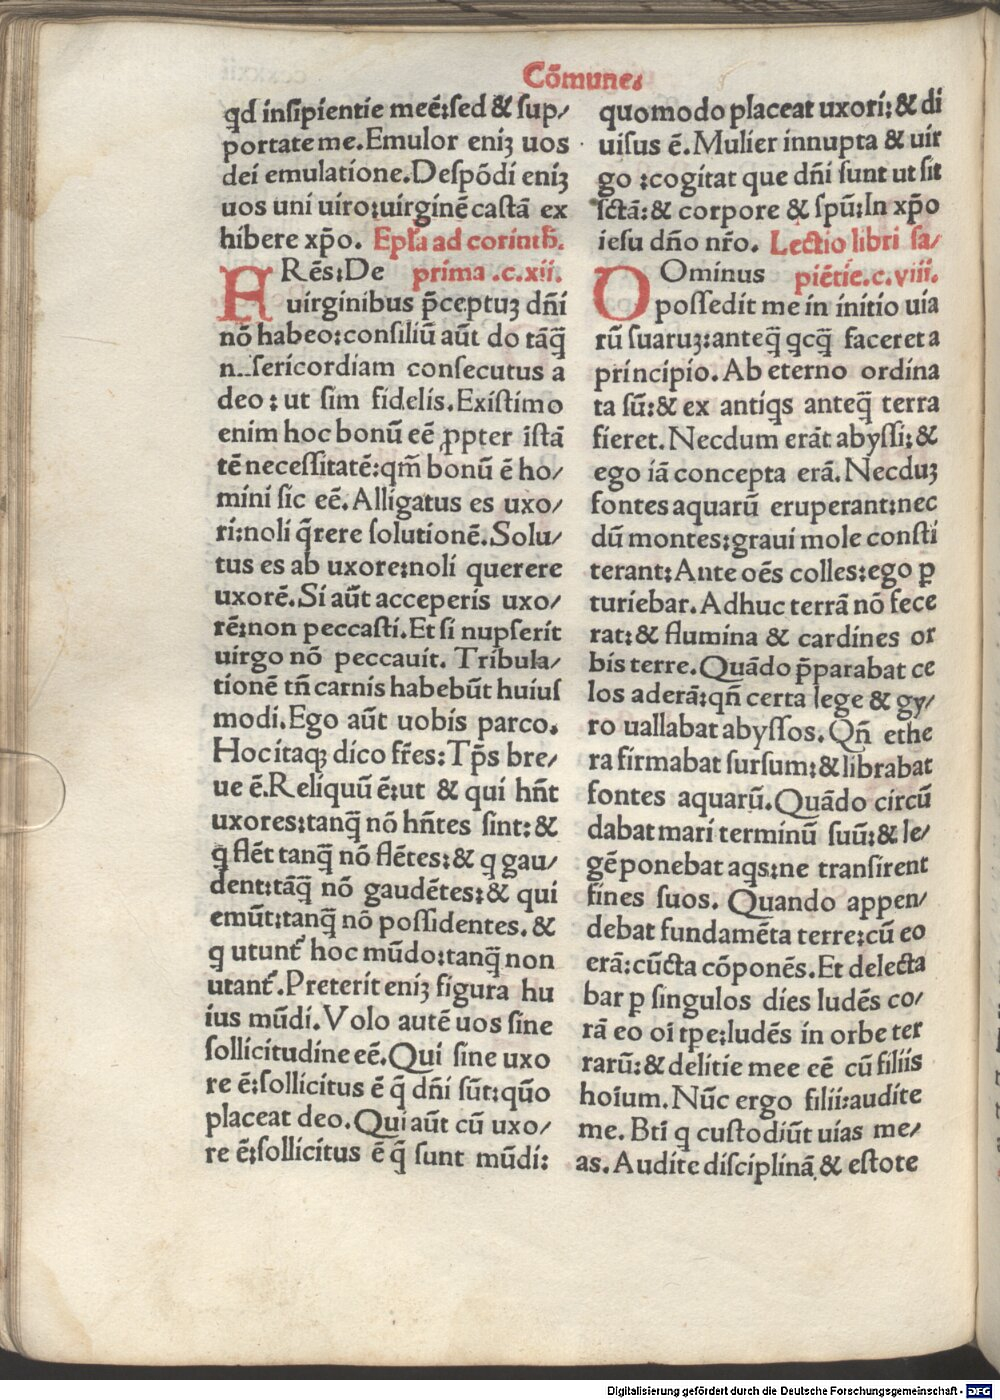 Cōmune
qd insipientie meē:sed & sup/
portate me.Emulor eniꝫ uos
dei emulatione.Despōdi eniꝫ
uos uni uiro:uirginē castā ex
hibere xp̄o. Epl̄a ad corinth.
FRēs:De prima .c.xii.
uirginibus p̄ceptuꝫ dn̄i
nō habeo:consiliū aūt do tāq̄
sericordiam consecutus a
deo: ut sim fidelis.Existimo
enim hoc bonū eē ꝓpter istā
tē necessitatē:qm̄ bonū ē ho/
mini sic eē.Alligatus es uxo/
ri:noli q̄rere solutionē.Solu/
tus es ab uxore:noli querere
uxorē.Si aūt acceperis uxo/
rē:non peccasti.Et si nupserit
uirgo nō peccauit. Tribula/
tionē tn̄ carnis habebūt huius
modi.Ego aūt uobis parco.
Hoc itaqꝫ dico fr̄es:Tp̄s bre/
ue ē.Reliquū ē:ut & qui hn̄t
uxores:tanq̄ nō hn̄tes sint:&
q flēt tanq̄ nō flētes:& q gau/
dent:tāq̄ nō gaudētes:& qui
emūt:tanq̄ nō possidentes. &
q utunt᷑ hoc mūdo:tanq̄ non
utant᷑.Preterit eniꝫ figura hu
ius mūdi.Volo autē uos sine
sollicitudine eē.Qui sine uxo
re ē:sollicitus ē q̄ dn̄i sūt:quō
placeat deo.Qui aūt cū uxo/
re ē:sollicitus ē q̄ sunt mūdi:
quomodo placeat uxori:& di
uisus ē.Mulier innupta & uir
go :cogitat que dn̄i sunt ut sit
sctā:& corpore & spū:In xp̄o
iesu dn̄o nr̄o. Lectio libri sa/
DOminus piētie.c.viii.
possedit me in initio uia
rū suaruꝫ:anteq̄ qcq̄ faceret a
principio.Ab eterno ordina
ta sū:& ex antiqs anteq̄ terra
fieret.Necdum erāt abyssi:&
ego iā concepta erā.Necduꝫ
fontes aquarū eruperant:nec
dū montes:graui mole consti
terant:Ante oēs colles:ego ꝑ
turiebar.Adhuc terrā nō fece
rat:& flumina & cardines or
bis terre.Quādo p̄parabat ce
los aderā:qn̄ certa lege & gy/
ro uallabat abyssos.Qn̄ ethe
ra firmabat sursum:& librabat
fontes aquarū.Quādo circū
dabat mari terminū suū:& le/
gē ponebat aqs:ne transirent
fines suos. Quando appen/
debat fundamēta terre:cū eo
erā:cūcta cōponēs.Et delecta
bar ꝑ singulos dies ludēs co/
rā eo oī tpe:ludēs in orbe ter
rarū:& delitie mee eē cū filiis
hoīum.Nūc ergo filii:audite
me. Bti q custodiūt uias me/
as.Audite disciplinā & estote
Digitalisierung gefördert durch die Deutsche Forschungsgemeinschaft - DFG